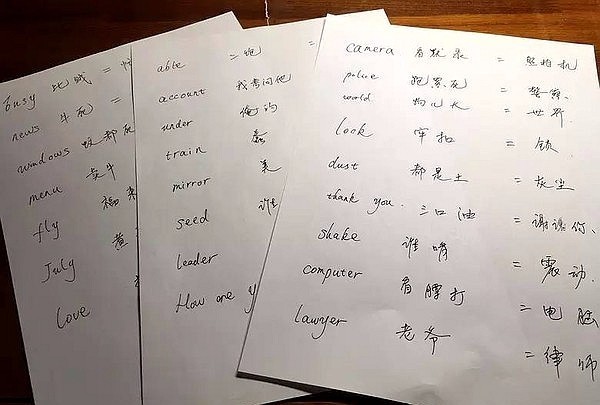 busy 比贼 =
news 牛死 =
windows 蚊都死
menu 卖牛
fly
July
love
able 二炮 =
account 我考问他
under
train 蠢
mirror
seed 谁
leader
How are y
camera 看默录 = 照相机
police 跑累死 = 警察、
world = 世界
lock 牢扣 = 锁
dust 都是土 = 灰尘
thank you. 三口油 = 谢谢你、
shake 谁 = 震动、
computer 看腰打 = 电脑
lawyer 老爷 = 律师